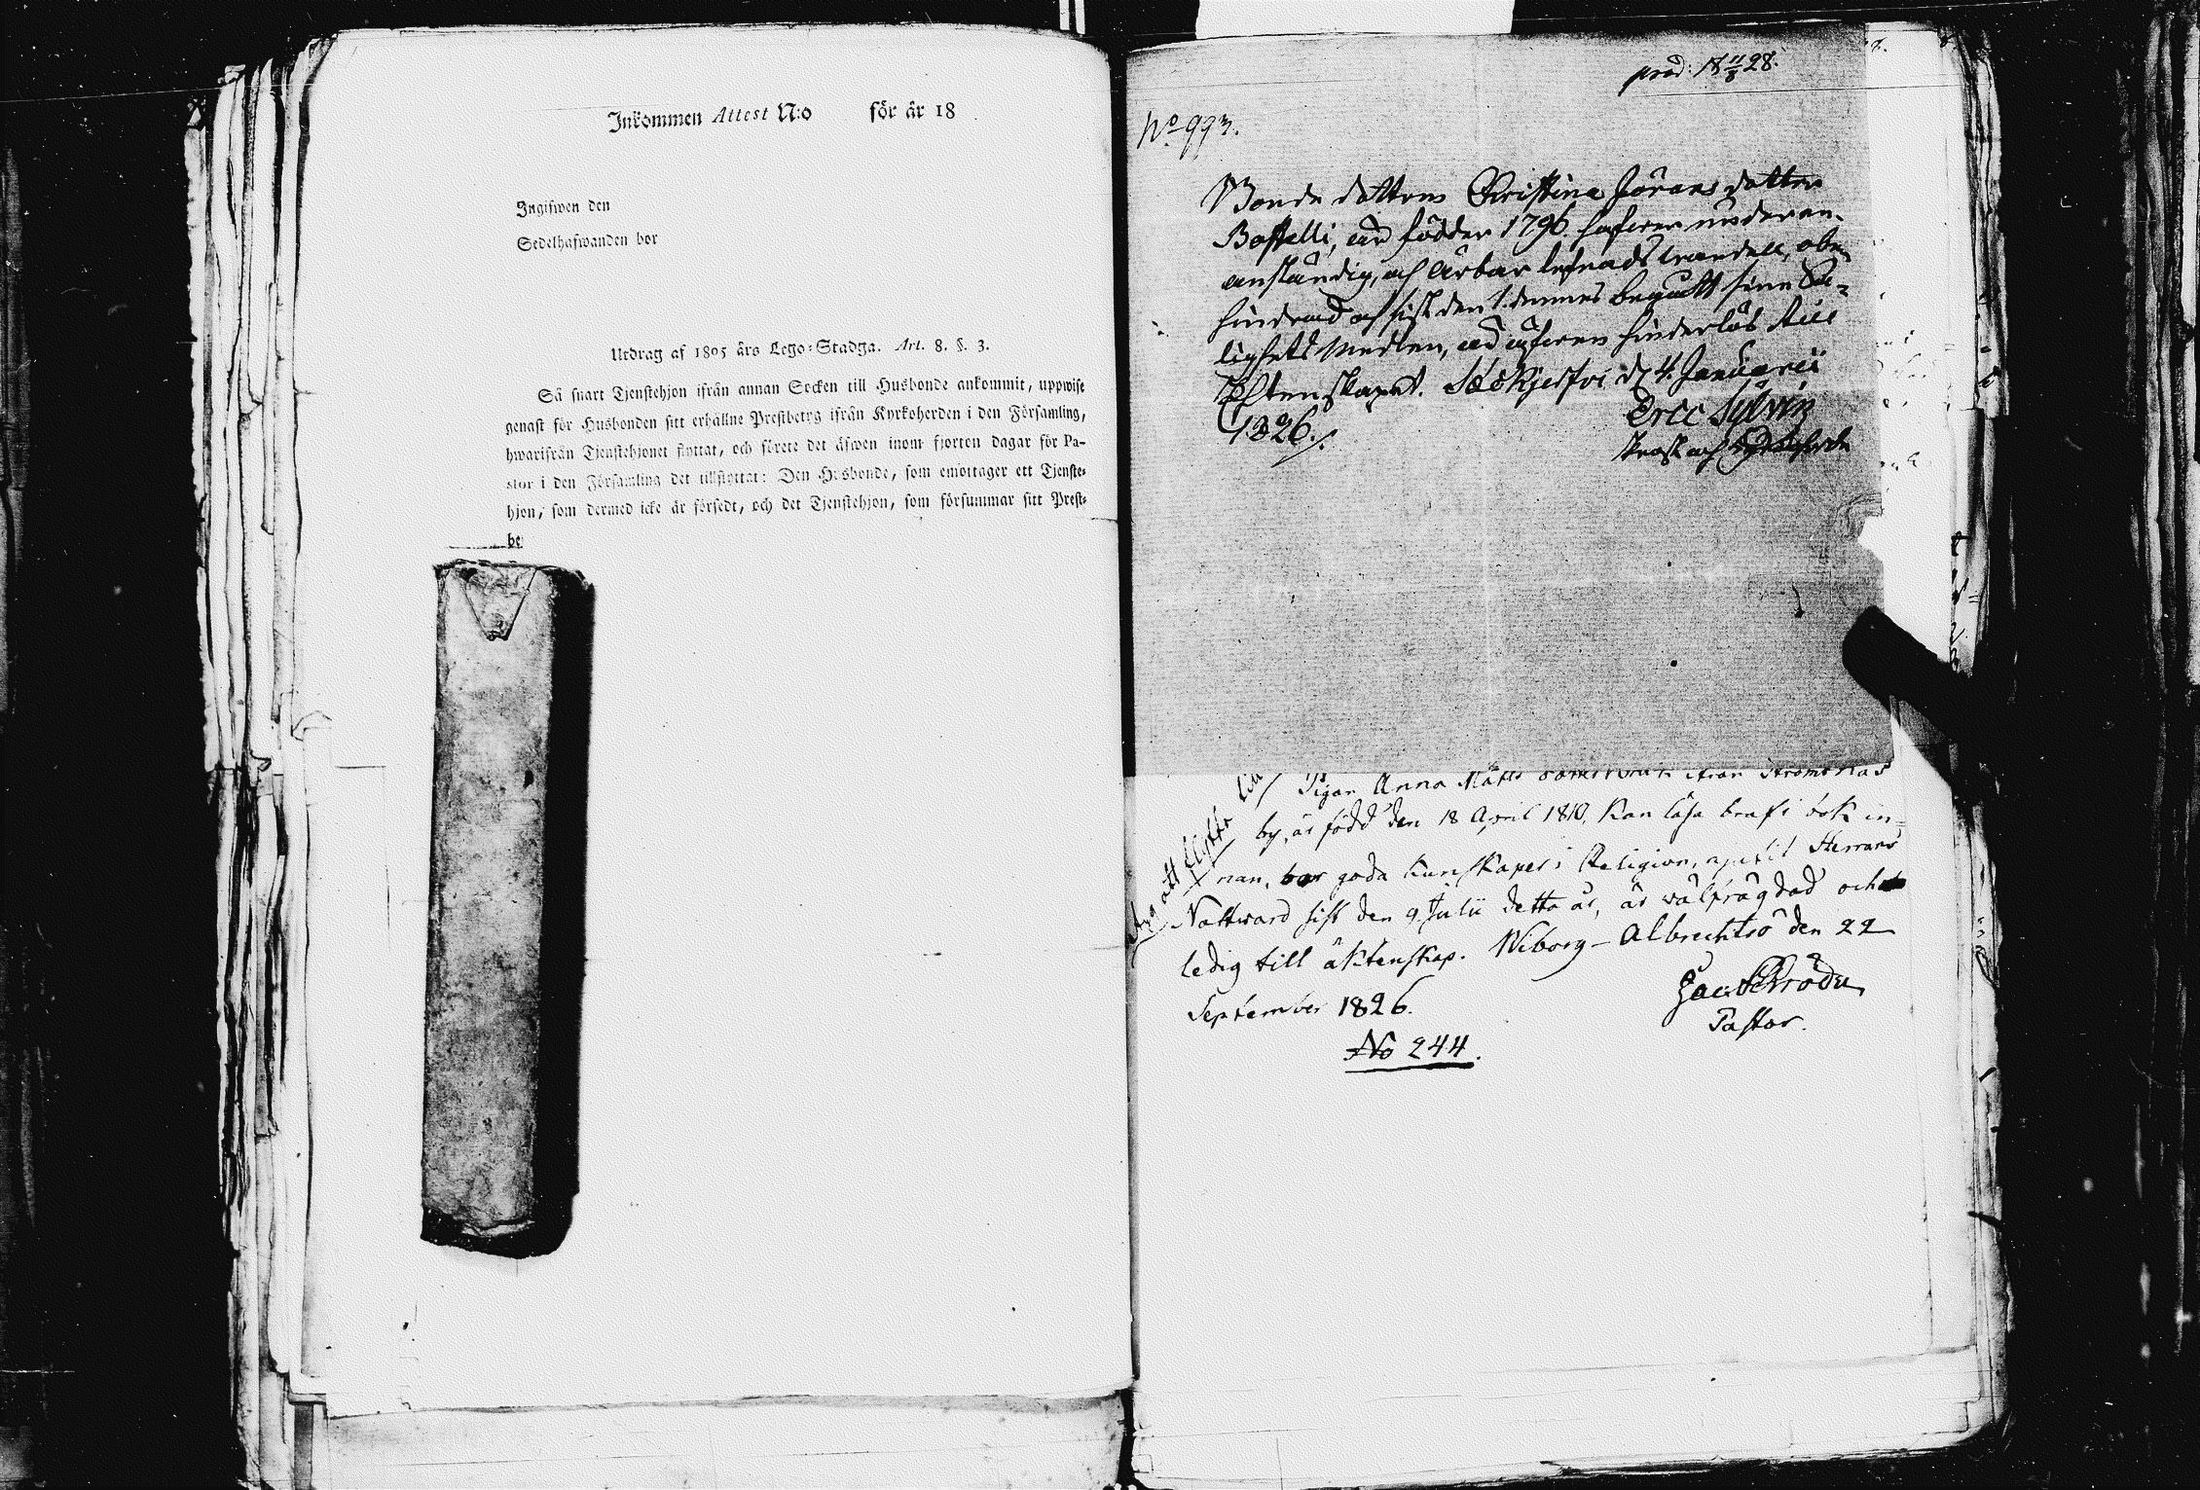 Inkommen Attest N:o för år 18
Ingifwen den
Sedelhafwanden bor
Utdrag af 1805 års Lego-Stadga. Art. 8. §. 3.
Så snart Tjenstehjon ifrån annan Socken till Husbonde ankommit, uppwise
genast för Husbonden sitt erhållne Prestbetyg ifrån Kyrkoherden i den Församling,
hwarifrån Tjenstehjonet flyttat, och förete det äfwen inom fjorton dagar för Pa-
stor i den Församling det tillflyttat: Den Husbonde, som emottager ett Tjenste-
hjon, som dermed icke är försedt, och det Tjenstehjon, som försummar sitt Prest-
be
prod: 18 11/8 28.
No 993.
Bonde dottren Christina Jörans dotter
är födder 1796.
anständig, och ärbar lefnads wandel, obe-
hindrad och sist den 1. dennes begått sine Sa-
lighets Medlen, äfwen hinderlös till
Ächtenskapet. d. 4 Januarii
1826.
Eric
Prost och Kyrkoherde
Pigan Anna Matts ifrån Strömsnäs
by, är född den 18 April 1810, kan läsa braf i bok in-
nan, har goda kunskaper i Religion, Herrans
Nattward sist den 9 Julii detta år, är wälfrägdad och
ledig till äktenskap. Wiborg - Albrechtsö den 22
September 1826.
Jac. Schröder
Pastor.
No 244.